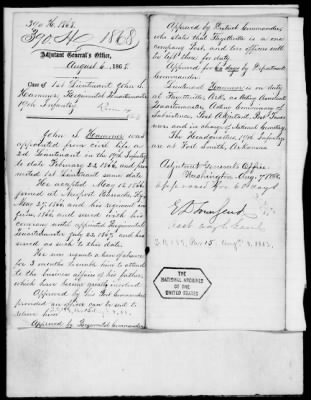 390 H. 1868.
390 H 1868
Adjutant General's Office,
August 6, 1868
Case of 1st Lieutenant John S.
Hammer, Regimental Quartermaster
19th Infantry
John S. Hammer was
appointed from civil life a
2d Lieutenant in the 19th Infantry
to date February 23, 1866, and pro-
moted 1st Lieutenant same date.
He accepted May 16, 1866,
joined at Newport Barracks, Ky.
May 27, 1866, and his regiment in
June, 1866, and served with his
company until appointed Regimental
Quartermaster July 22, 1867, and has
served as such to this date.
He now requests a leave of absence
for 3 months to enable him to attend
to the business affairs of his father,
which have become greatly involved.
Approved by his Post Commander,
provided an officer can be sent to
relieve him
Approved by Regimental Commander
Approved by District Commander
who states that Fayetteville is a one
company Post, and two officers will
be left there for duty.
Approved for 60 days by Department
Commander.
Lieutenant Hammer is on duty
at Fayetteville, Ark., as Acting Assistant
Quartermaster, Acting Commissary of
Subsistence, Post Adjutant, Post Treas-
urer and in charge of National Cemetery.
The Headquarters, 19th Infantry
are at Fort Smith, Arkansas.
Adjutant General's Office
Washington Aug. 7, 1868
Approved for 60 days
E D Townsend
Asst Adjt Genl
THE
NATIONAL ARCHIVES
OF THE
UNITED STATES